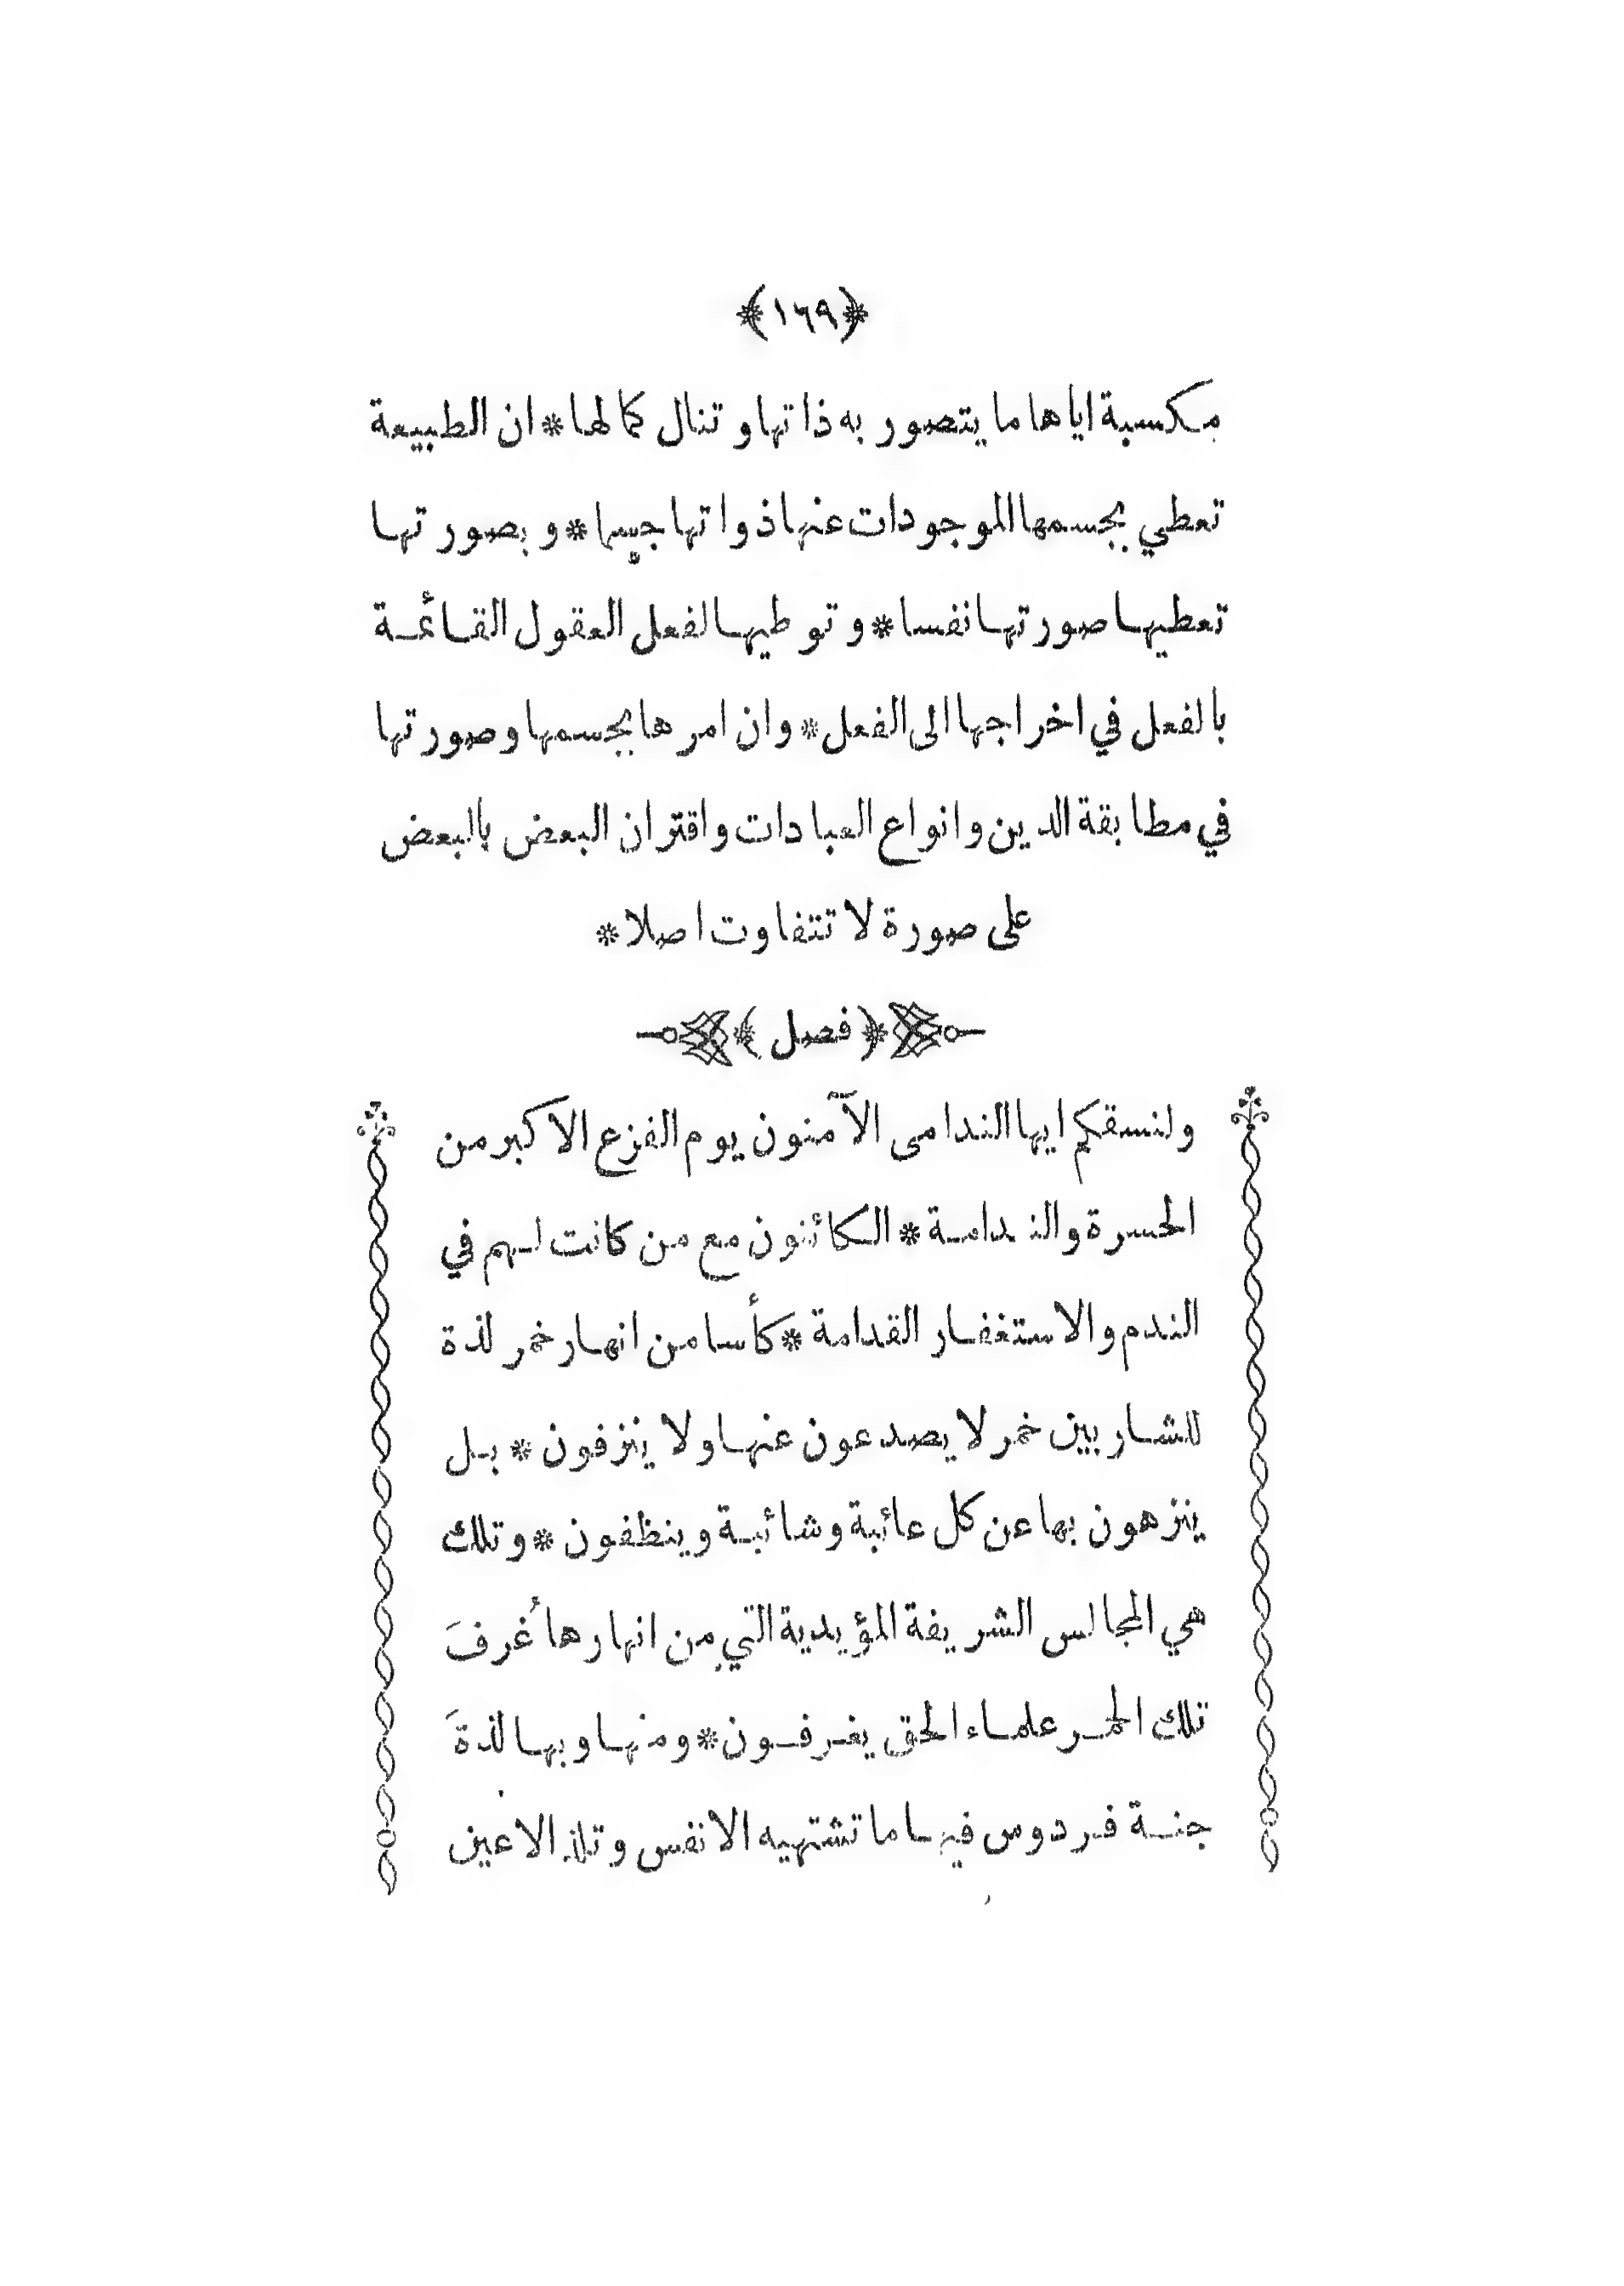 ﴿١٦٩﴾
مكسبة اياها ما يتصور به ذاتها و تنال كمالها * ان الطبيعة
تعطي بجسمها الموجودات عنها ذواتها جسما * و بصورتها
تعطيها صورتها نفسا * و توطيها لفعل العقول القائمة
بالفعل في اخراجها الى الفعل * وان امرها بجسمها وصورتها
في مطابقة الدين وانواع العبادات واقتران البعض بالبعض
على صورة لا تتفاوت اصلا *
﴿ فصل ﴾
ولنسقكم ايها الندامى الآمنون يوم الفزع الاكبر من
الحسرة والندامة * الكائنون مع من كانت لهم في
الندم والاستغفار القدامة * كأسا من انهار خمر لذة
للشاربين خمر لا يصدعون عنها ولا ينزفون * بل
ينزهون بها عن كل عائبة وشائبة وينظفون * وتلك
هي المجالس الشريفة المؤيدية التي من انهارها غُرفَ
تلك الخمر علماء الحق يغرفون * ومنها وبها لذةَ
جنة فردوس فيها ما تشتهيه الانفس وتلذ الاعين